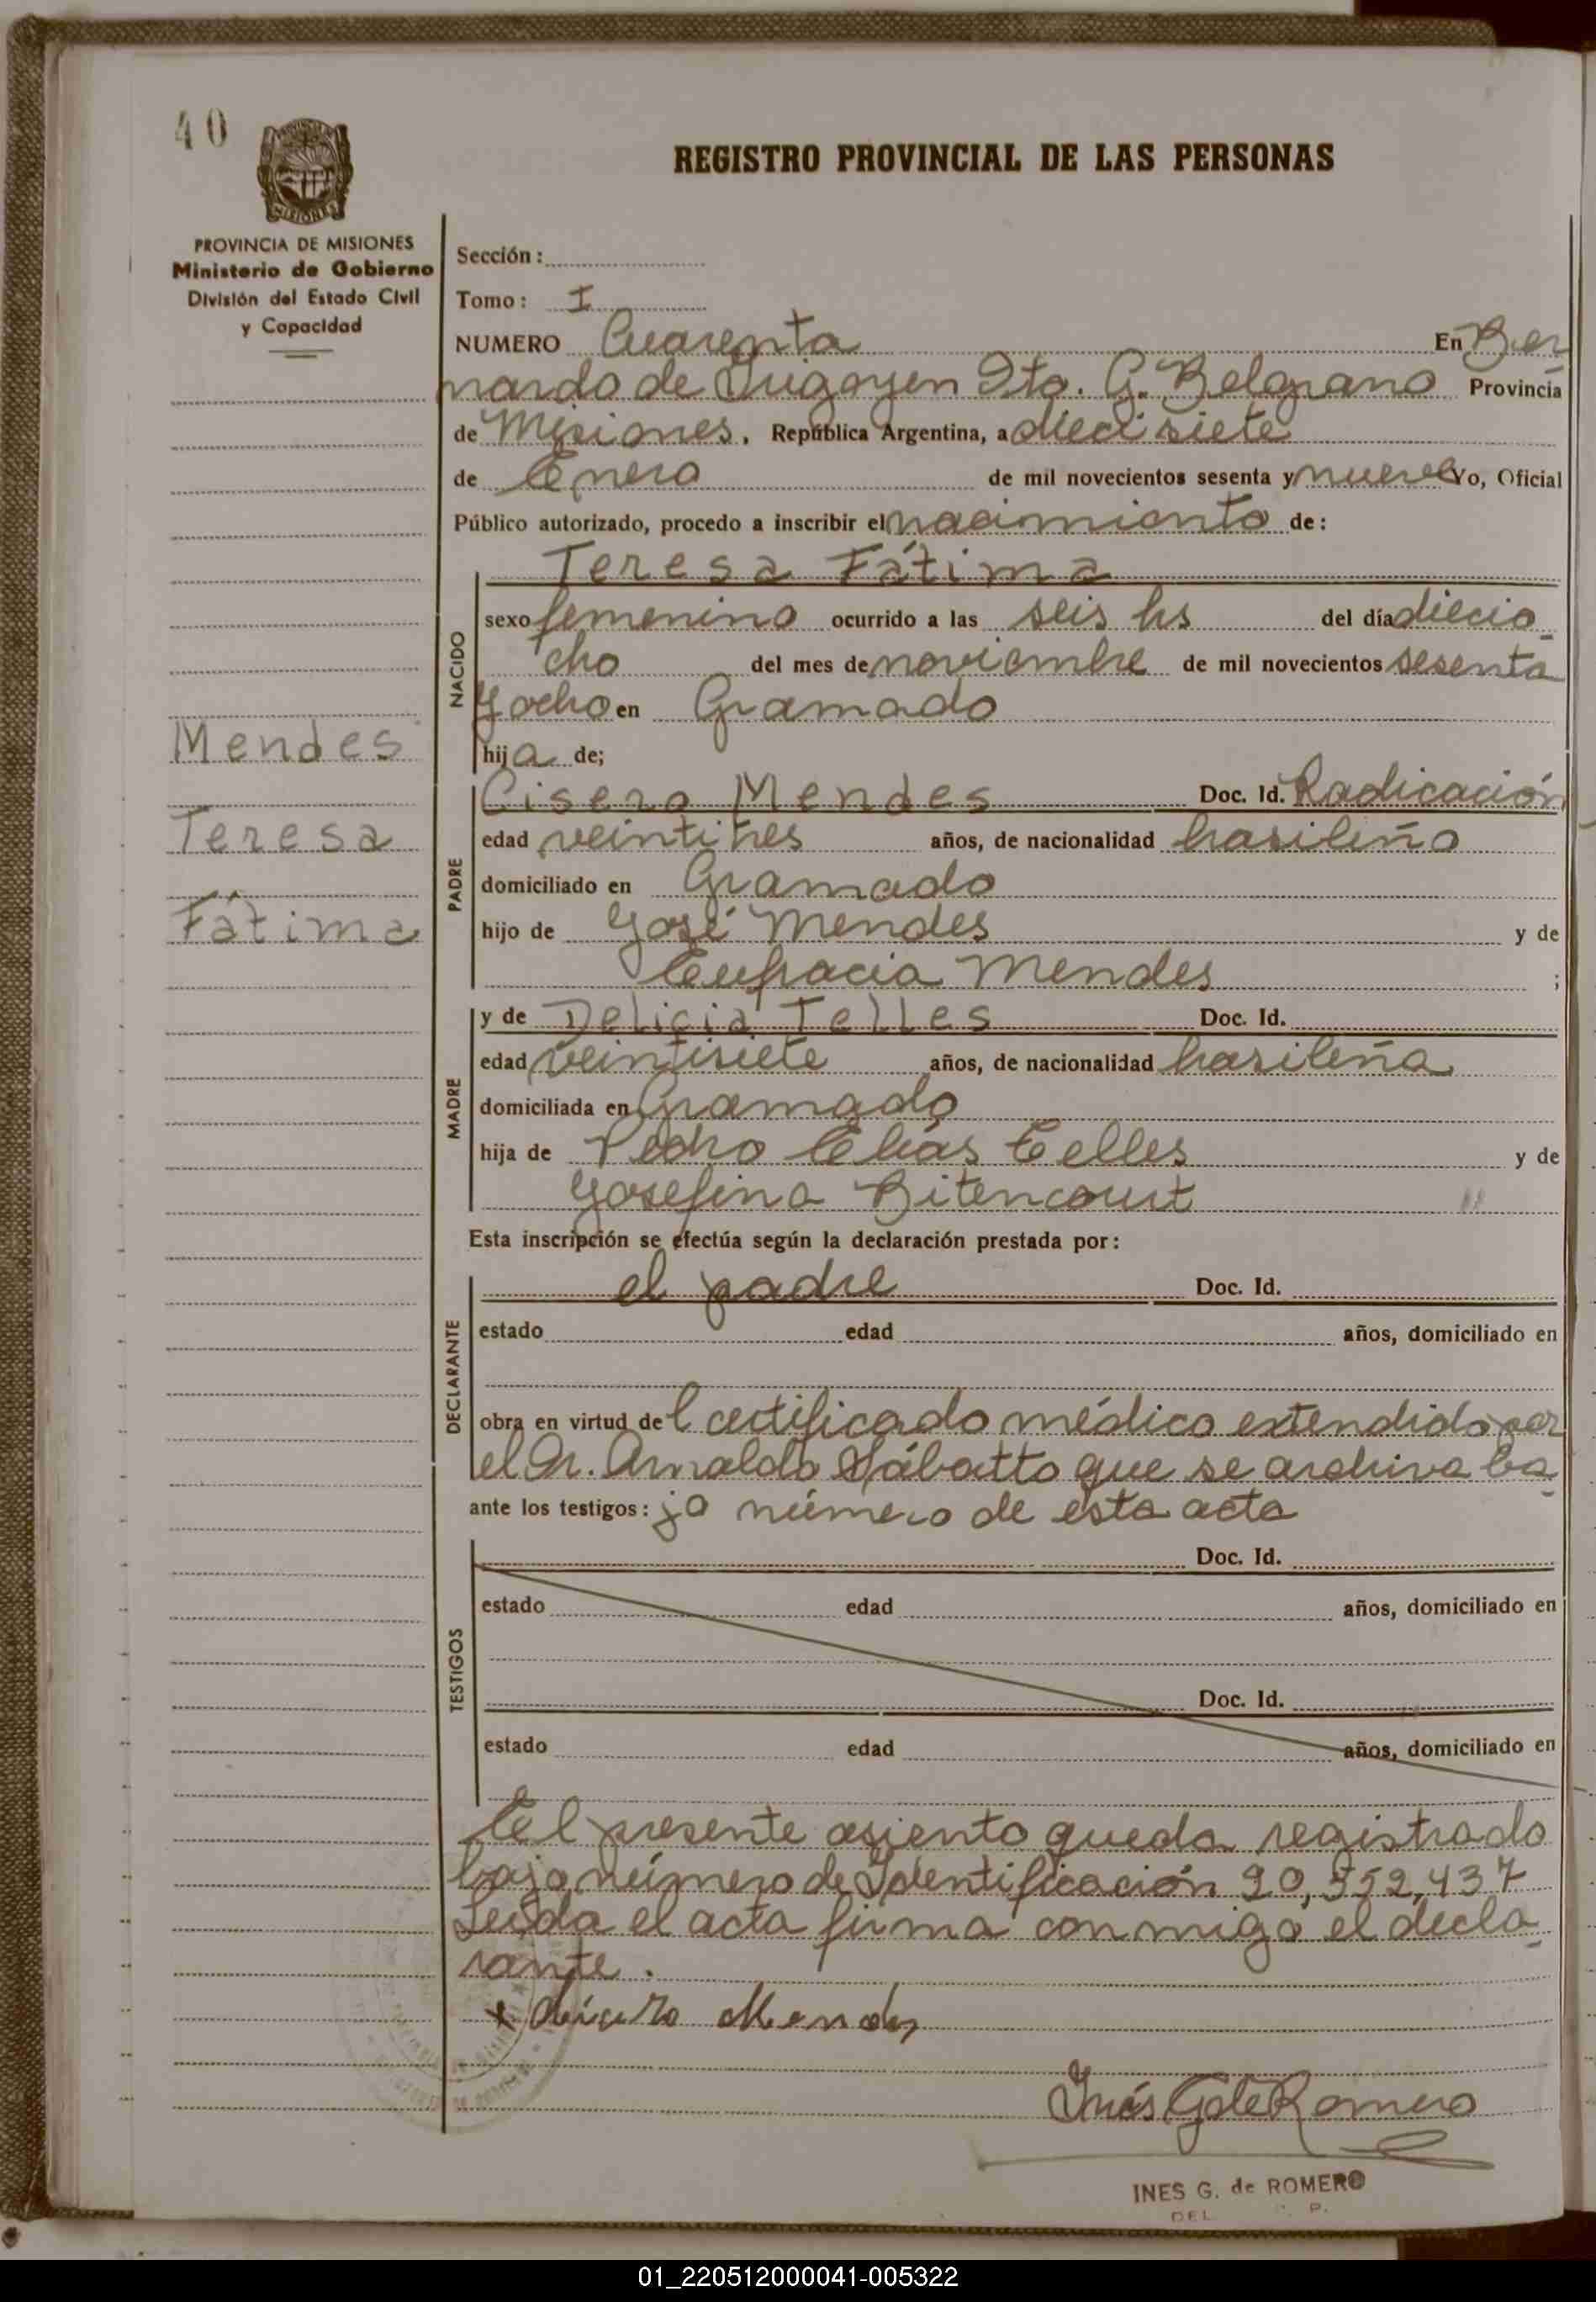 40
REGISTRO PROVINCIAL DE LAS PERSONAS
MISIONES
PROVINCIA DE MISIONES
Ministerio de Gobierno
División del Estado Civil
y Capacidad
Sección:
Tomo: I
NUMERO Cuarenta En Ber
nardo de Irigoyen Dto. G. Belgrano Provincia
de Misiones. República Argentina, a diecisiete
de Enero de mil novecientos sesenta y nueve Yo, Oficial
Público autorizado, procedo a inscribir el nacimiento de:
Teresa Fátima
NACIDO
sexo femenino ocurrido a las seis hs del día diecio_
cho del mes de noviembre de mil novecientos sesenta
y ocho en Gramado
hija de;
Mendes
Teresa
Fátima
PADRE
Cisero Mendes Doc. Id. Radicación
edad veintitres años, de nacionalidad brasileño
domiciliado en Gramado
hijo de José Mendes y de
Eufracia Mendes ;
MADRE
y de Delicia Telles Doc. Id.
edad veintisiete años, de nacionalidad brasileña
domiciliada en Gramado
hija de Pedro Elías Telles y de
Josefina Bitencourt
Esta inscripción se efectúa según la declaración prestada por:
DECLARANTE
el padre Doc. Id.
estado edad años, domiciliado en
obra en virtud del certificado médico extendido por
el Dr. Arnaldo Sábatto que se archiva ba_
ante los testigos: jo número de esta acta
TESTIGOS
Doc. Id.
estado edad años, domiciliado en
Doc. Id.
estado edad años, domiciliado en
El presente asiento queda registrado
bajo número de Identificación 20,552,437
Leída el acta firma conmigo el decla_
rante.
x Cícero Mendes
Inés G de Romero
INES G. de ROMERO
DEL P.
01_220512000041-005322